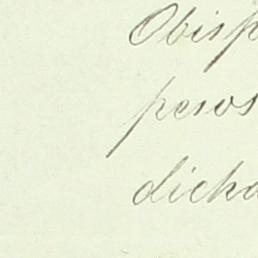 Obisp
pesos
dicha